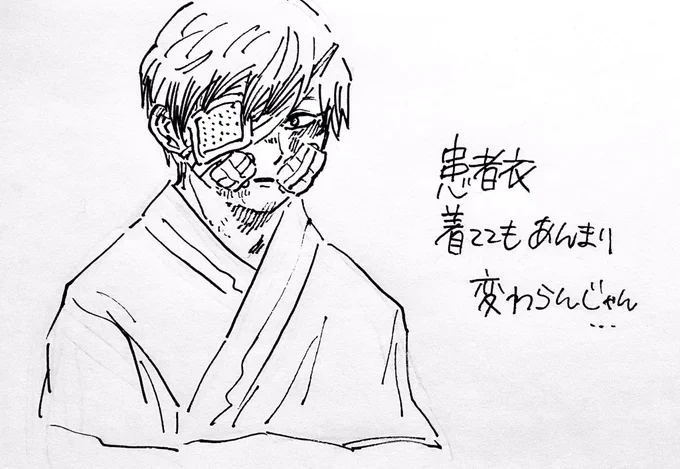 患者衣
着ててもあんまり
変わらんじゃん
...